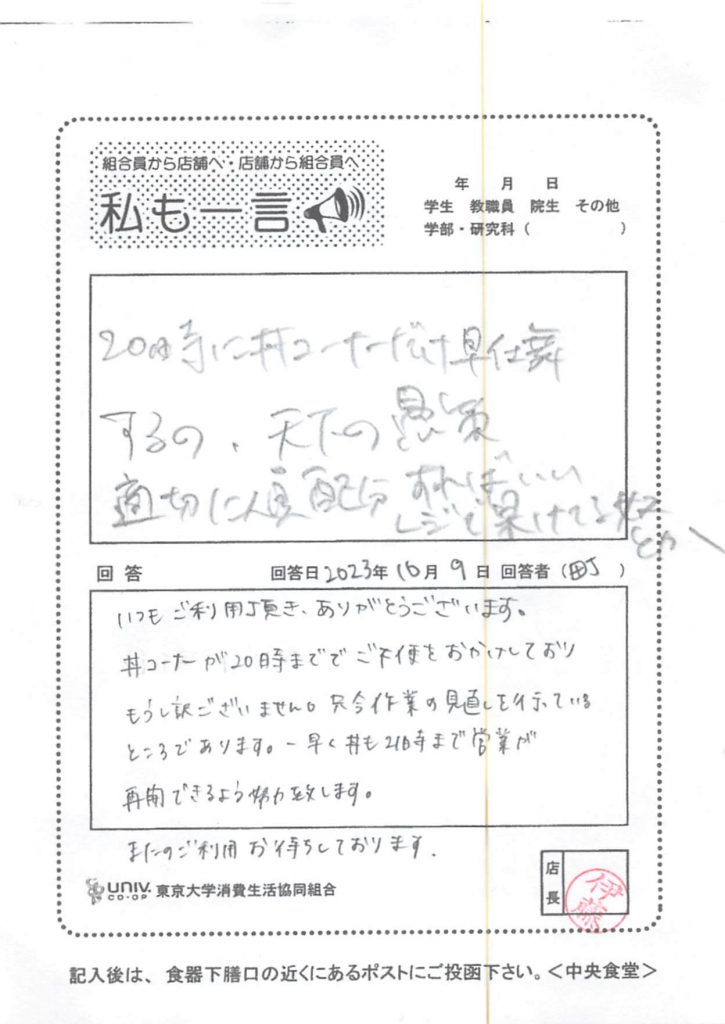 組合員から店舗へ・店舗から組合員へ
私も一言
年 月 日
学生 教職員 院生 その他
学部・研究科（ ）
20時に丼コーナーだけ早仕舞
するの、天下の愚策
適切に人員配分すればいい
レジで呆けてる
とか
回答 回答日2023年10月9日 回答者（町）
いつもご利用頂き、ありがとうございます。
丼コーナーが20時まででご不便をおかけしており
もうし訳ございません。只今作業の見直しを行っている
ところであります。一早く丼も21時まで営業が
再開できるよう努力致します。
またのご利用お待ちしております.
UNIV. CO-OP 東京大学消費生活協同組合
店長 伊藤
記入後は、食器下膳口の近くにあるポストにご投函下さい。＜中央食堂＞